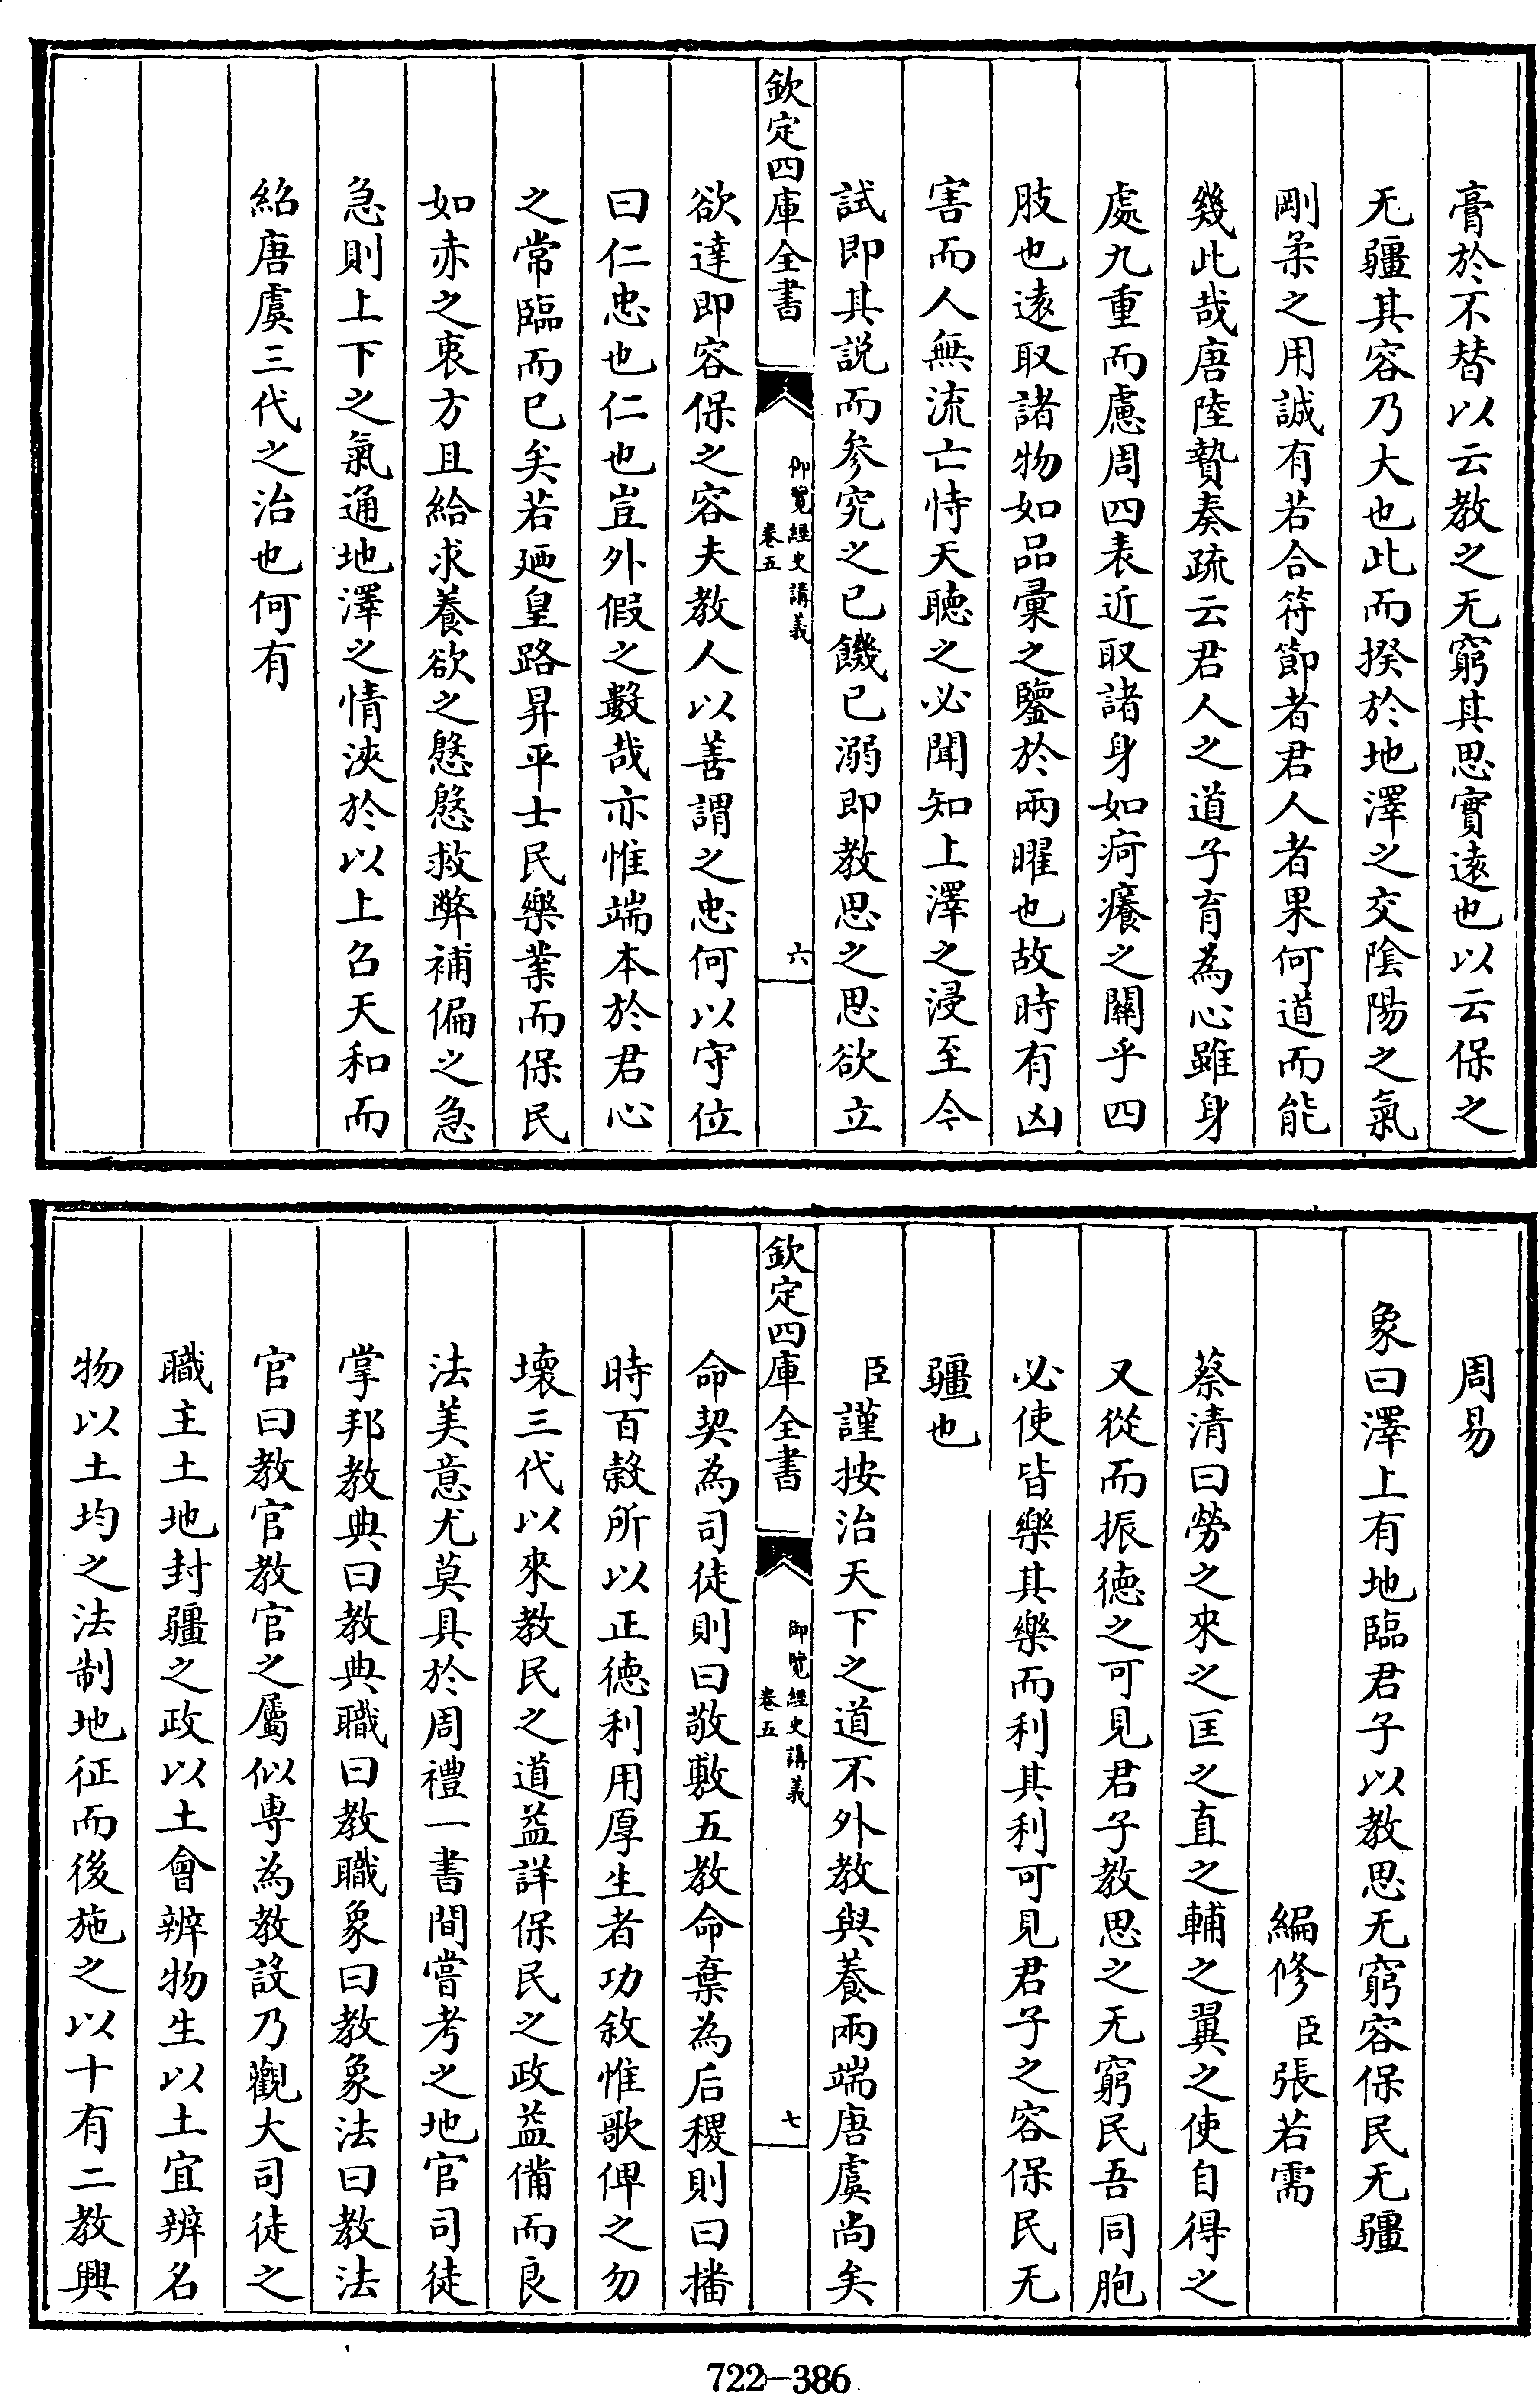 膏於不替以云教之无窮其思實遠也以云保之
无疆其容乃大也此而揆於地澤之交陰陽之氣
剛柔之用誠有若合符節者君人者果何道而能
幾此哉唐陸贄奏疏云君人之道子育為心雖身
處九重而慮周四表近取諸身如疴癢之關乎四
肢也遠取諸物如品彚之鑒於兩曜也故時有凶
害而人無流亡恃天聴之必聞知上澤之浸至今
試即其説而参究之已饑已溺即教思之思欲立
欽定四庫全書
御覽經史講義
卷五
六
欲達即容保之容夫教人以善謂之忠何以守位
曰仁忠也仁也豈外假之數哉亦惟端本於君心
之常臨而已矣若廼皇路昇平士民樂業而保民
如赤之衷方且給求養欲之慇慇救弊補偏之急
急則上下之氣通地澤之情浹於以上召天和而
紹唐虞三代之治也何有
周易
象曰澤上有地臨君子以教思无窮容保民无疆
編修臣張若需
蔡清曰勞之來之匡之直之輔之翼之使自得之
又從而振德之可見君子教思之无窮民吾同胞
必使皆樂其樂而利其利可見君子之容保民无
疆也
臣謹按治天下之道不外教與養兩端唐虞尚矣
欽定四庫全書
御覽經史講義
卷五
七
命契為司徒則曰敬敷五教命棄為后稷則曰播
時百穀所以正德利用厚生者功敘惟歌俾之勿
壞三代以來教民之道益詳保民之政益備而良
法美意尤莫具於周禮一書間嘗考之地官司徒
掌邦教典曰教典職曰教職象曰教象法曰教法
官曰教官教官之屬似専為教設乃觀大司徒之
職主土地封疆之政以土會辨物生以土宜辨名
物以土均之法制地征而後施之以十有二教興
722-386